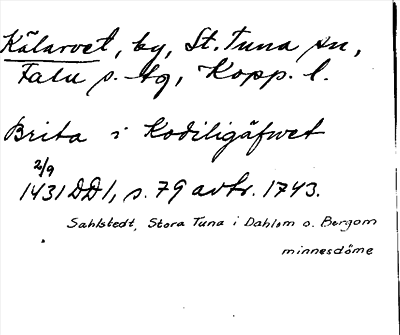 Kälarvet, by, St. Tuna sn,
Falu s. tg, Kopp. l.
Brita i Kodiligäfwet
2/9
1431 DD 1, s. 79 avtr. 1743.
Sahlstedt, Stora Tuna i Dahlom o. Bergom
minnesdöme